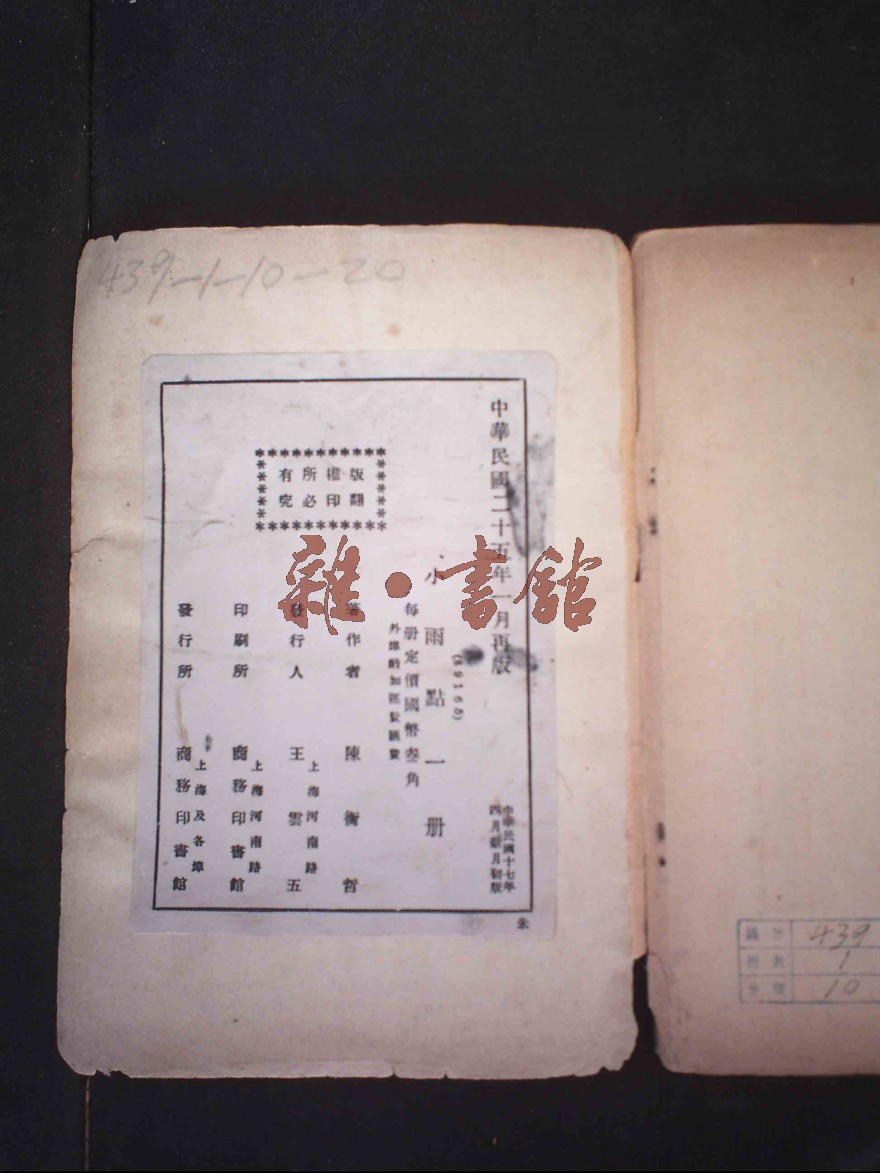 439-1-10-20
中華民國二十五年一月再版
中華民國十七年
四月新月初版
(59165)
小雨點一册
每册定價國幣叁角
外埠酌加運費匯費
版權所有
翻印必究
著作者 陳衡哲
發行人 王雲五
上海河南路
印刷所 商務印書館
上海河南路
發行所 商務印書館
上海及各埠
朱
雜·書館
439
冊數 1
10